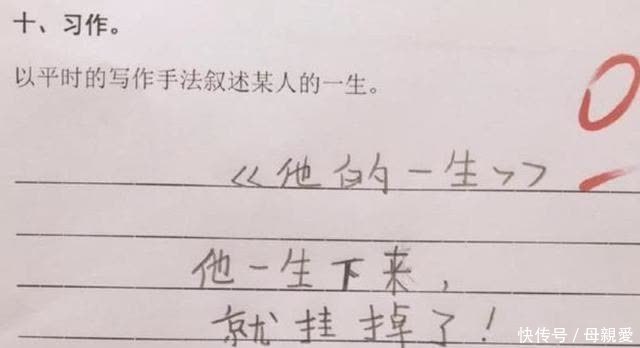 十、习作。
以平时的写作手法叙述某人的一生。
0
《他的一生》
他一生下来，
就挂掉了！
快传号／母親愛